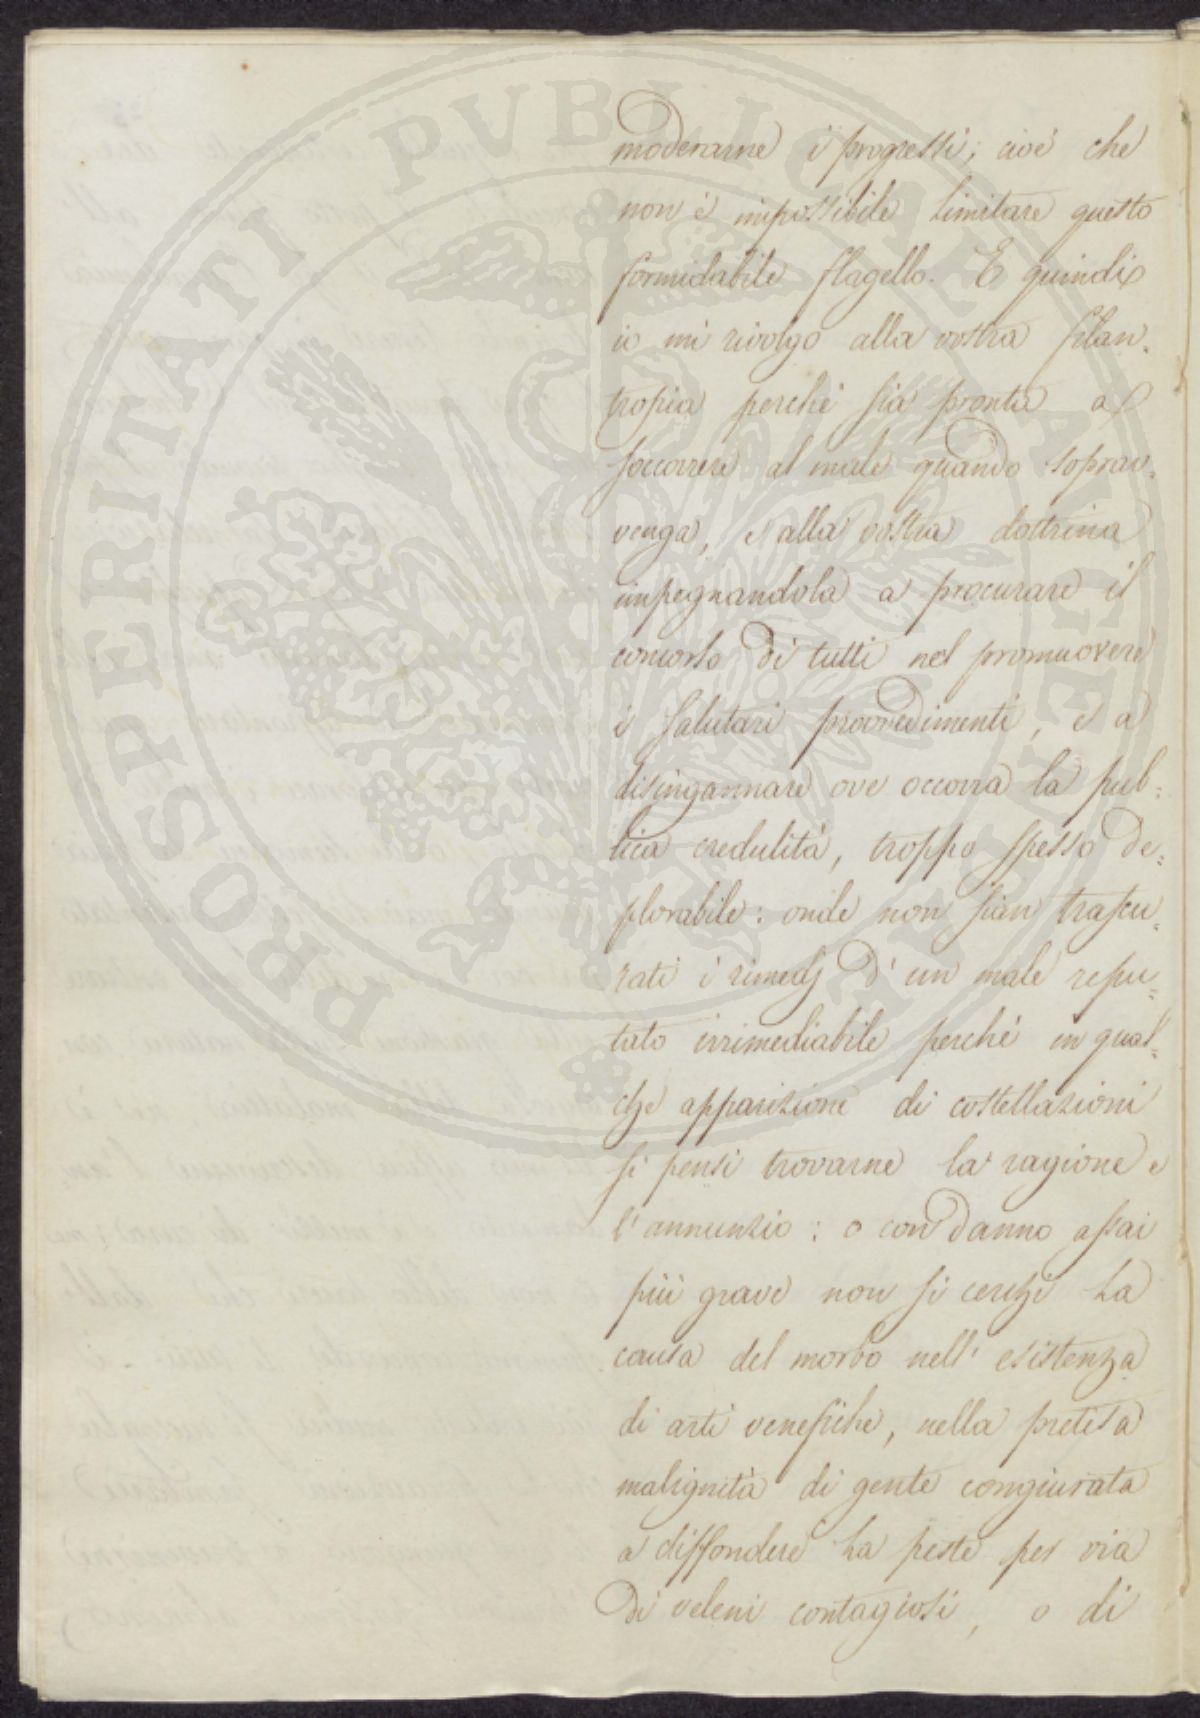 PROSPERITATI PVBLICAE AVGENDAE
moderarne i progressi; cioè che
non è impossibile limitare questo
formidabile flagello. E quindi
io mi rivolgo alla vostra filan-
tropia perchè sia pronta a
soccorrere al male quando soprav-
venga, e alla vostra dottrina
impegnandola a procurare il
concorso di tutti nel promuovere
i salutari provvedimenti, e a
disingannare ove occorra la pub-
lica credulità, troppo spesso de-
plorabile: onde non sian trascu-
rati i rimedj d'un male repu-
tato irrimediabile perchè in qual-
che apparizione di costellazioni
si pensi trovarne la ragione e
l'annunzio: o con danno assai
più grave non si cerchi la
causa del morbo nell'esistenza
di arti venefiche, nella pretesa
malignità di gente congiurata
a diffondere la peste per via
di veleni contagiosi, o di